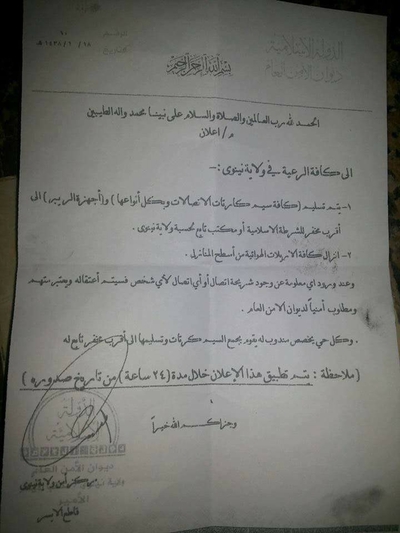 الدولة الإسلامية
ديوان الأمن العام
بسم الله الرحمن الرحيم
التاريخ ١٨ / ٢ / ١٤٣٨ هـ
الحمد لله رب العالمين والصلاة والسلام على نبينا محمد واله الطيبين
م / اعلان
الى كافة الرعية في ولاية نينوى :-
١- يتم تسليم ( كافة سيم كارتات الاتصالات وبكل أنواعها ) و ( أجهزة الريبر ) الى
أقرب مخفر للشرطة الاسلامية أو مكتب تابع لحسبة ولاية نينوى .
٢- انزال كافة الانريلات الهوائية من أسطح المنازل .
وعند ورود أي معلومة عن وجود شريحة اتصال أو أي اتصال لأي شخص فسيتم أعتقاله ويعتبر متهم
ومطلوب أمنياً لديوان الامن العام .
. وكل حي يخصص مندوب له يقوم بجمع السيم كارتات وتسليمها الى أقرب مخفر تابع له
( ملاحظة : يتم تطبيق هذا الإعلان خلال مدة ( ٢٤ ساعة ) من تاريخ صدوره )
وجزاكم الله خيراً
الدولة
الإسلامية
ديوان الأمن العام
مركز أمن ولاية نينوى
الأمنية
قاطع الايسر